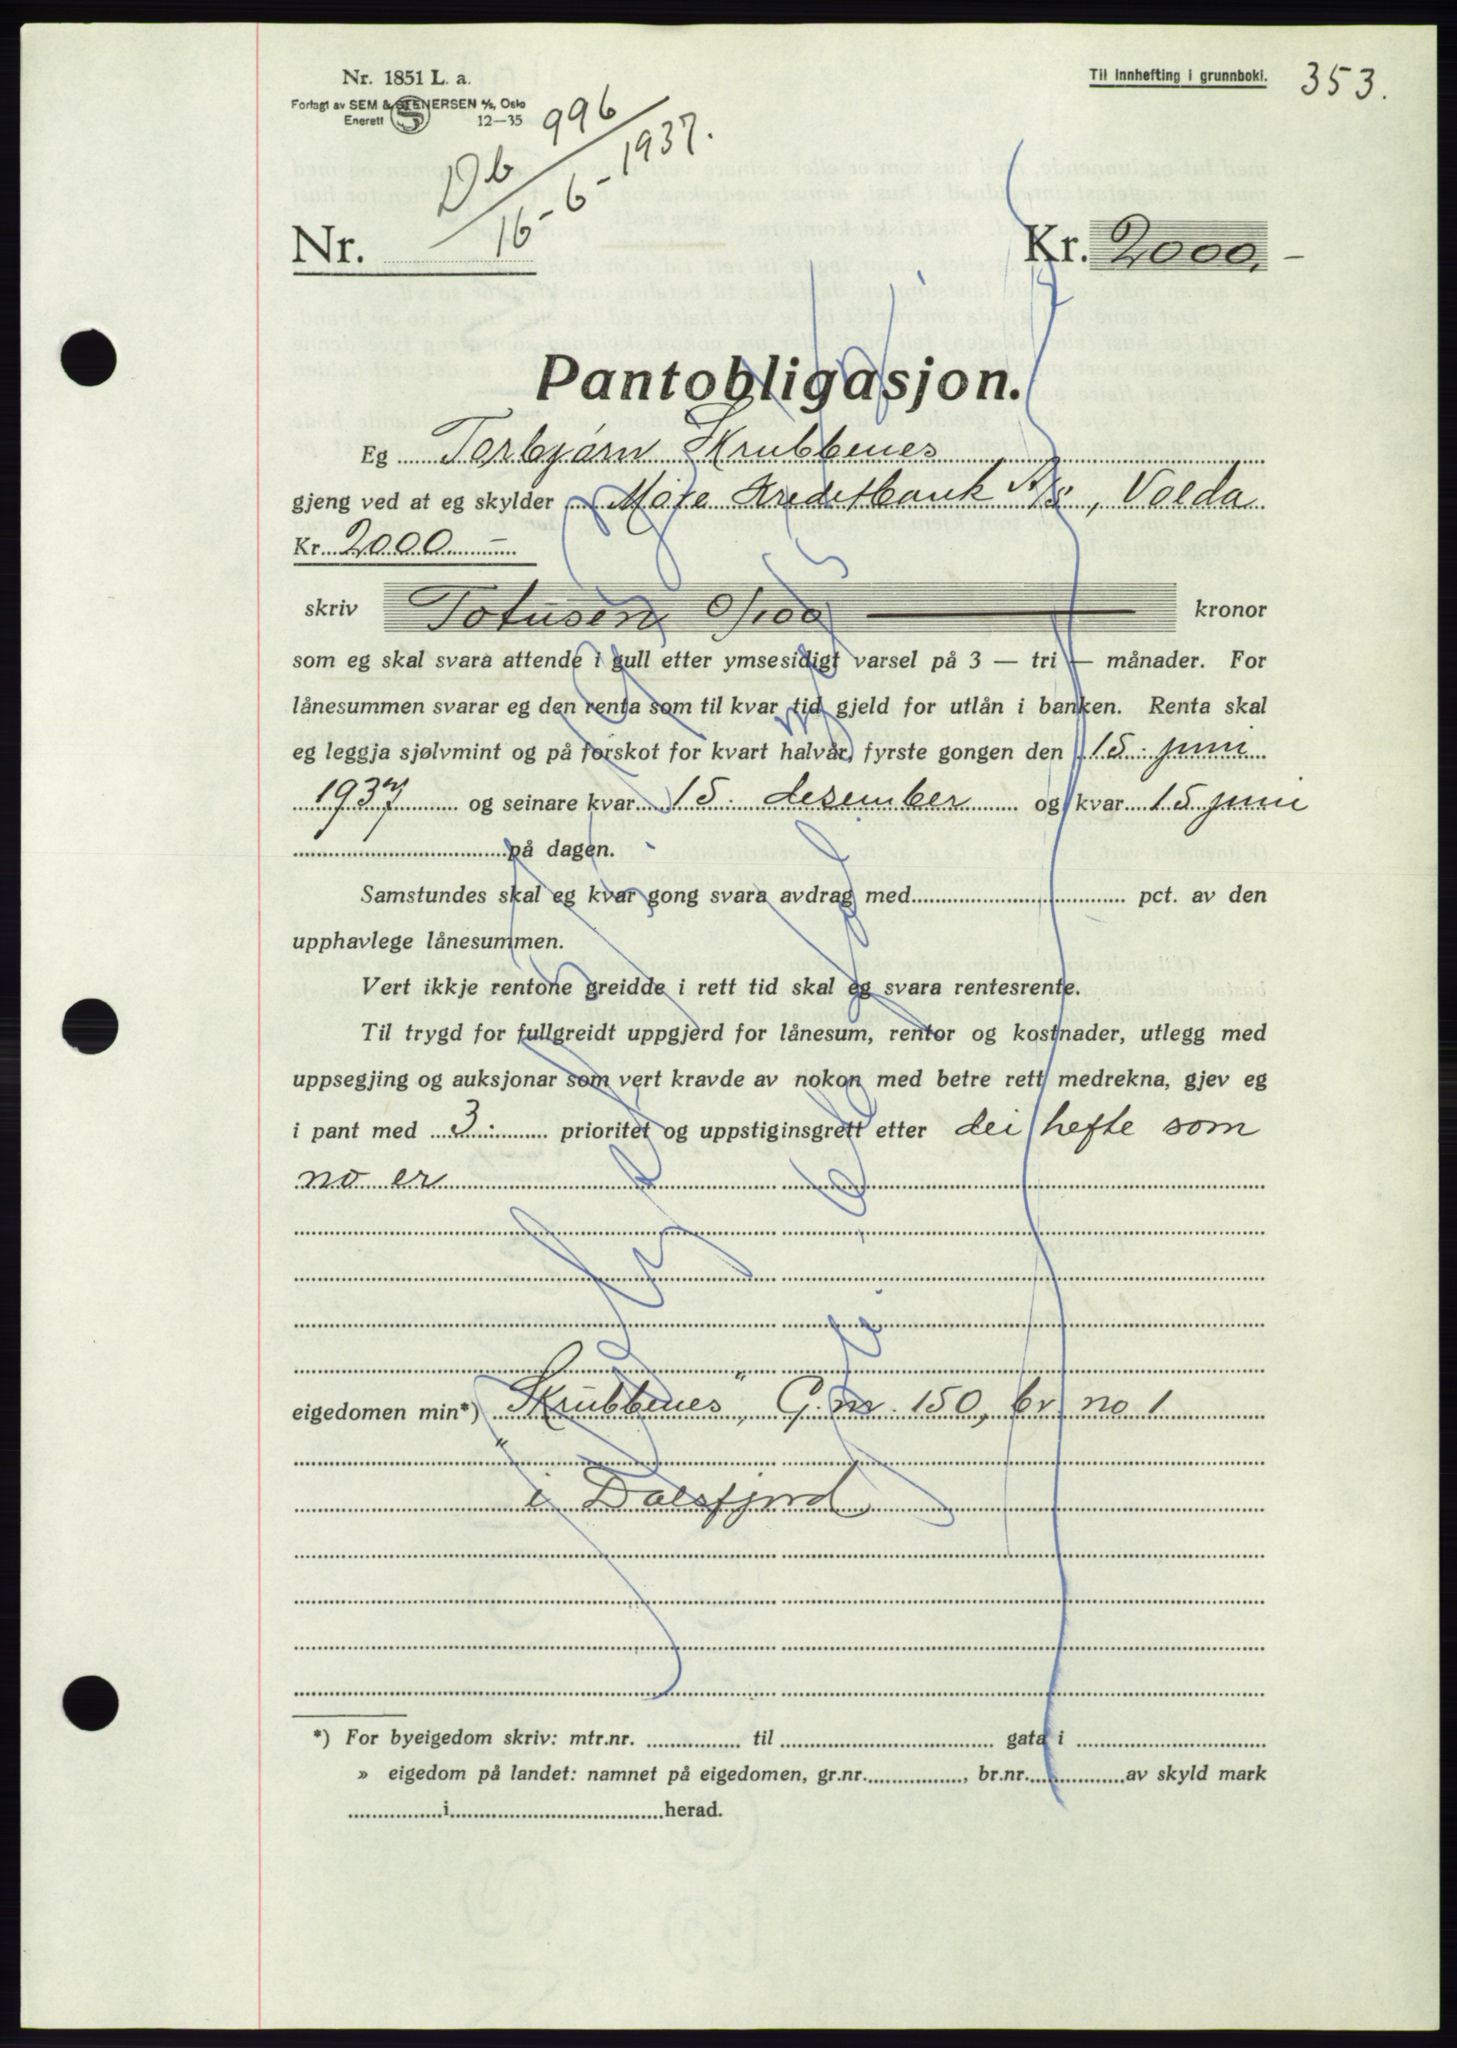 Nr. 1851 L. a.
Forlagt av SEM & STENERSEN A/S, Oslo
Enerett 12—35
Til innhefting i grunnboki.
353.
Db 996
16-6-1937.
Nr.
Kr. 2000.—
Pantobligasjon.
Eg Torbjørn Skrubbenes
gjeng ved at eg skylder Møre Kreditbank A/s, Volda
Kr. 2000 —
skriv Totusen 0/100 kronor
som eg skal svara attende i gull etter ymsesidigt varsel på 3 — tri — månader. For
lånesummen svarar eg den renta som til kvar tid gjeld for utlån i banken. Renta skal
eg leggja sjølvmint og på forskot for kvart halvår, fyrste gongen den 15. juni
1937 og seinare kvar 15. desember og kvar 15 juni
på dagen.
Samstundes skal eg kvar gong svara avdrag med pct. av den
upphavlege lånesummen.
Vert ikkje rentone greidde i rett tid skal eg svara rentesrente.
Til trygd for fullgreidt uppgjerd for lånesum, rentor og kostnader, utlegg med
uppsegjing og auksjonar som vert kravde av nokon med betre rett medrekna, gjev eg
i pant med 3. prioritet og uppstiginsgrett etter dei hefte som
no er
eigedomen min*) "Skrubbenes", G.nr. 150, br. no 1
i Dalsfjord
*) For byeigedom skriv: mtr.nr. til gata i
» eigedom på landet: namnet på eigedomen, gr.nr. , br.nr. av skyld mark
i herad.